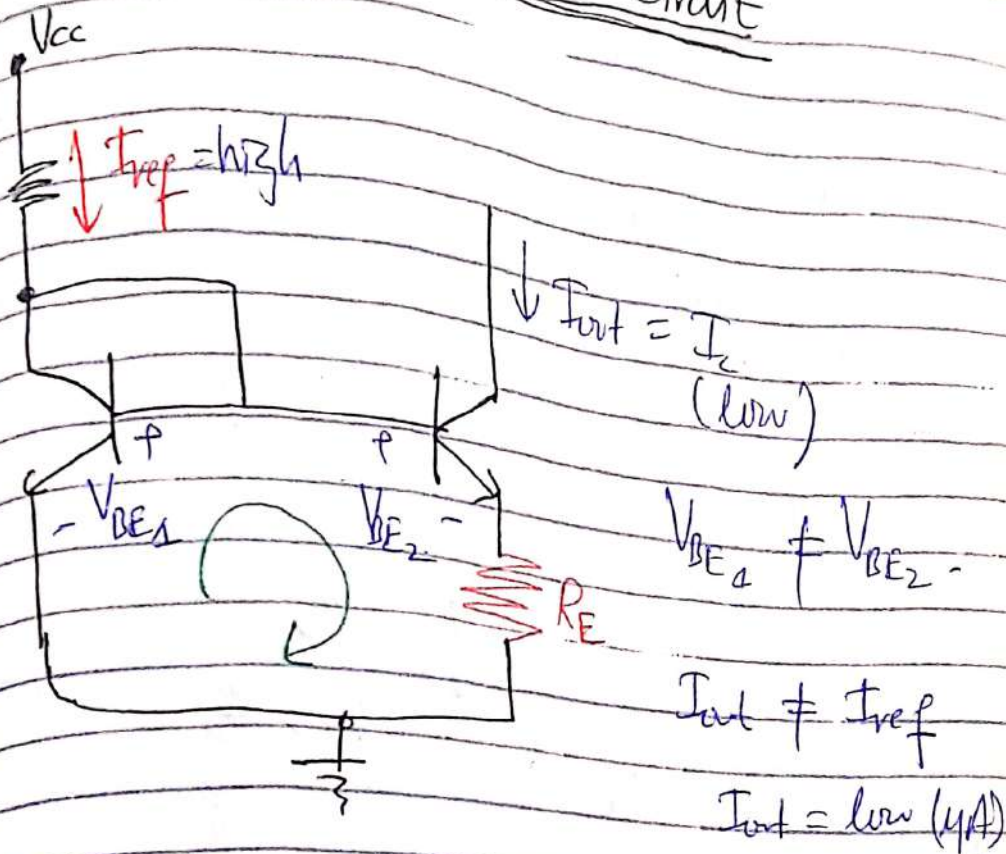 Circuit
Vcc
Iref = high
Iout = Ic
(low)
+ +
- VBE1 VBE2 -
VBE1 ≠ VBE2 -
RE
Iout ≠ Iref
Iout = low (μA)